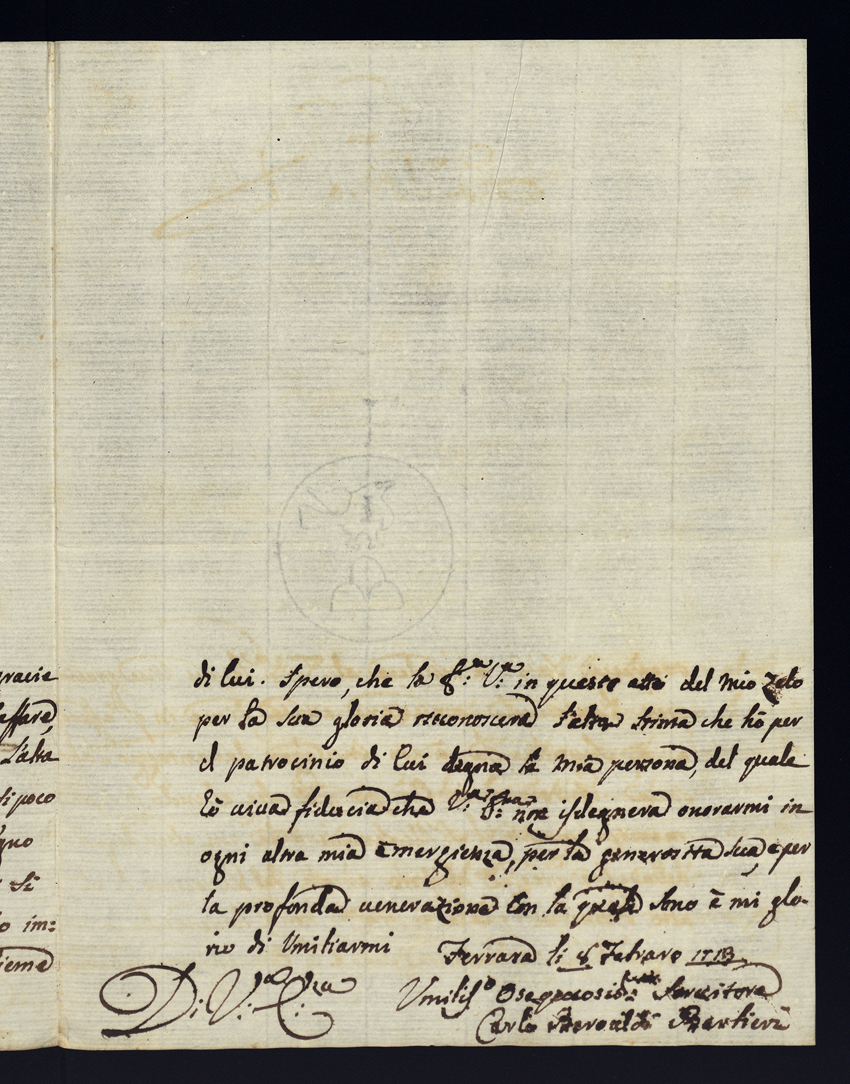 gracie
affare
L'alta
di poco
gno
Si
o im:
ieme
di lui. Spero, che la S:ra V:ra in questo atto del mio Zelo
per la sua gloria riconoscerà l'alta stima che hò per
el patrocinio di lui degna la mia persona, del quale
hò viva fiducia che V:ra S:ra non isdegnerà onorarmi in
ogni altra mia emergienza, per la generosità sua, e per
la profonda venerazione con la quale sono è mi glo-
rio di Umiliarmi
Ferrara li 8 Febraro 1713
Di V:ra
Umilis:o Osequiosis:o Servitore
Carlo Bartieri